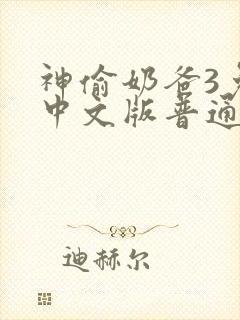 神偷奶爸3
中文版普通
迪赫尔